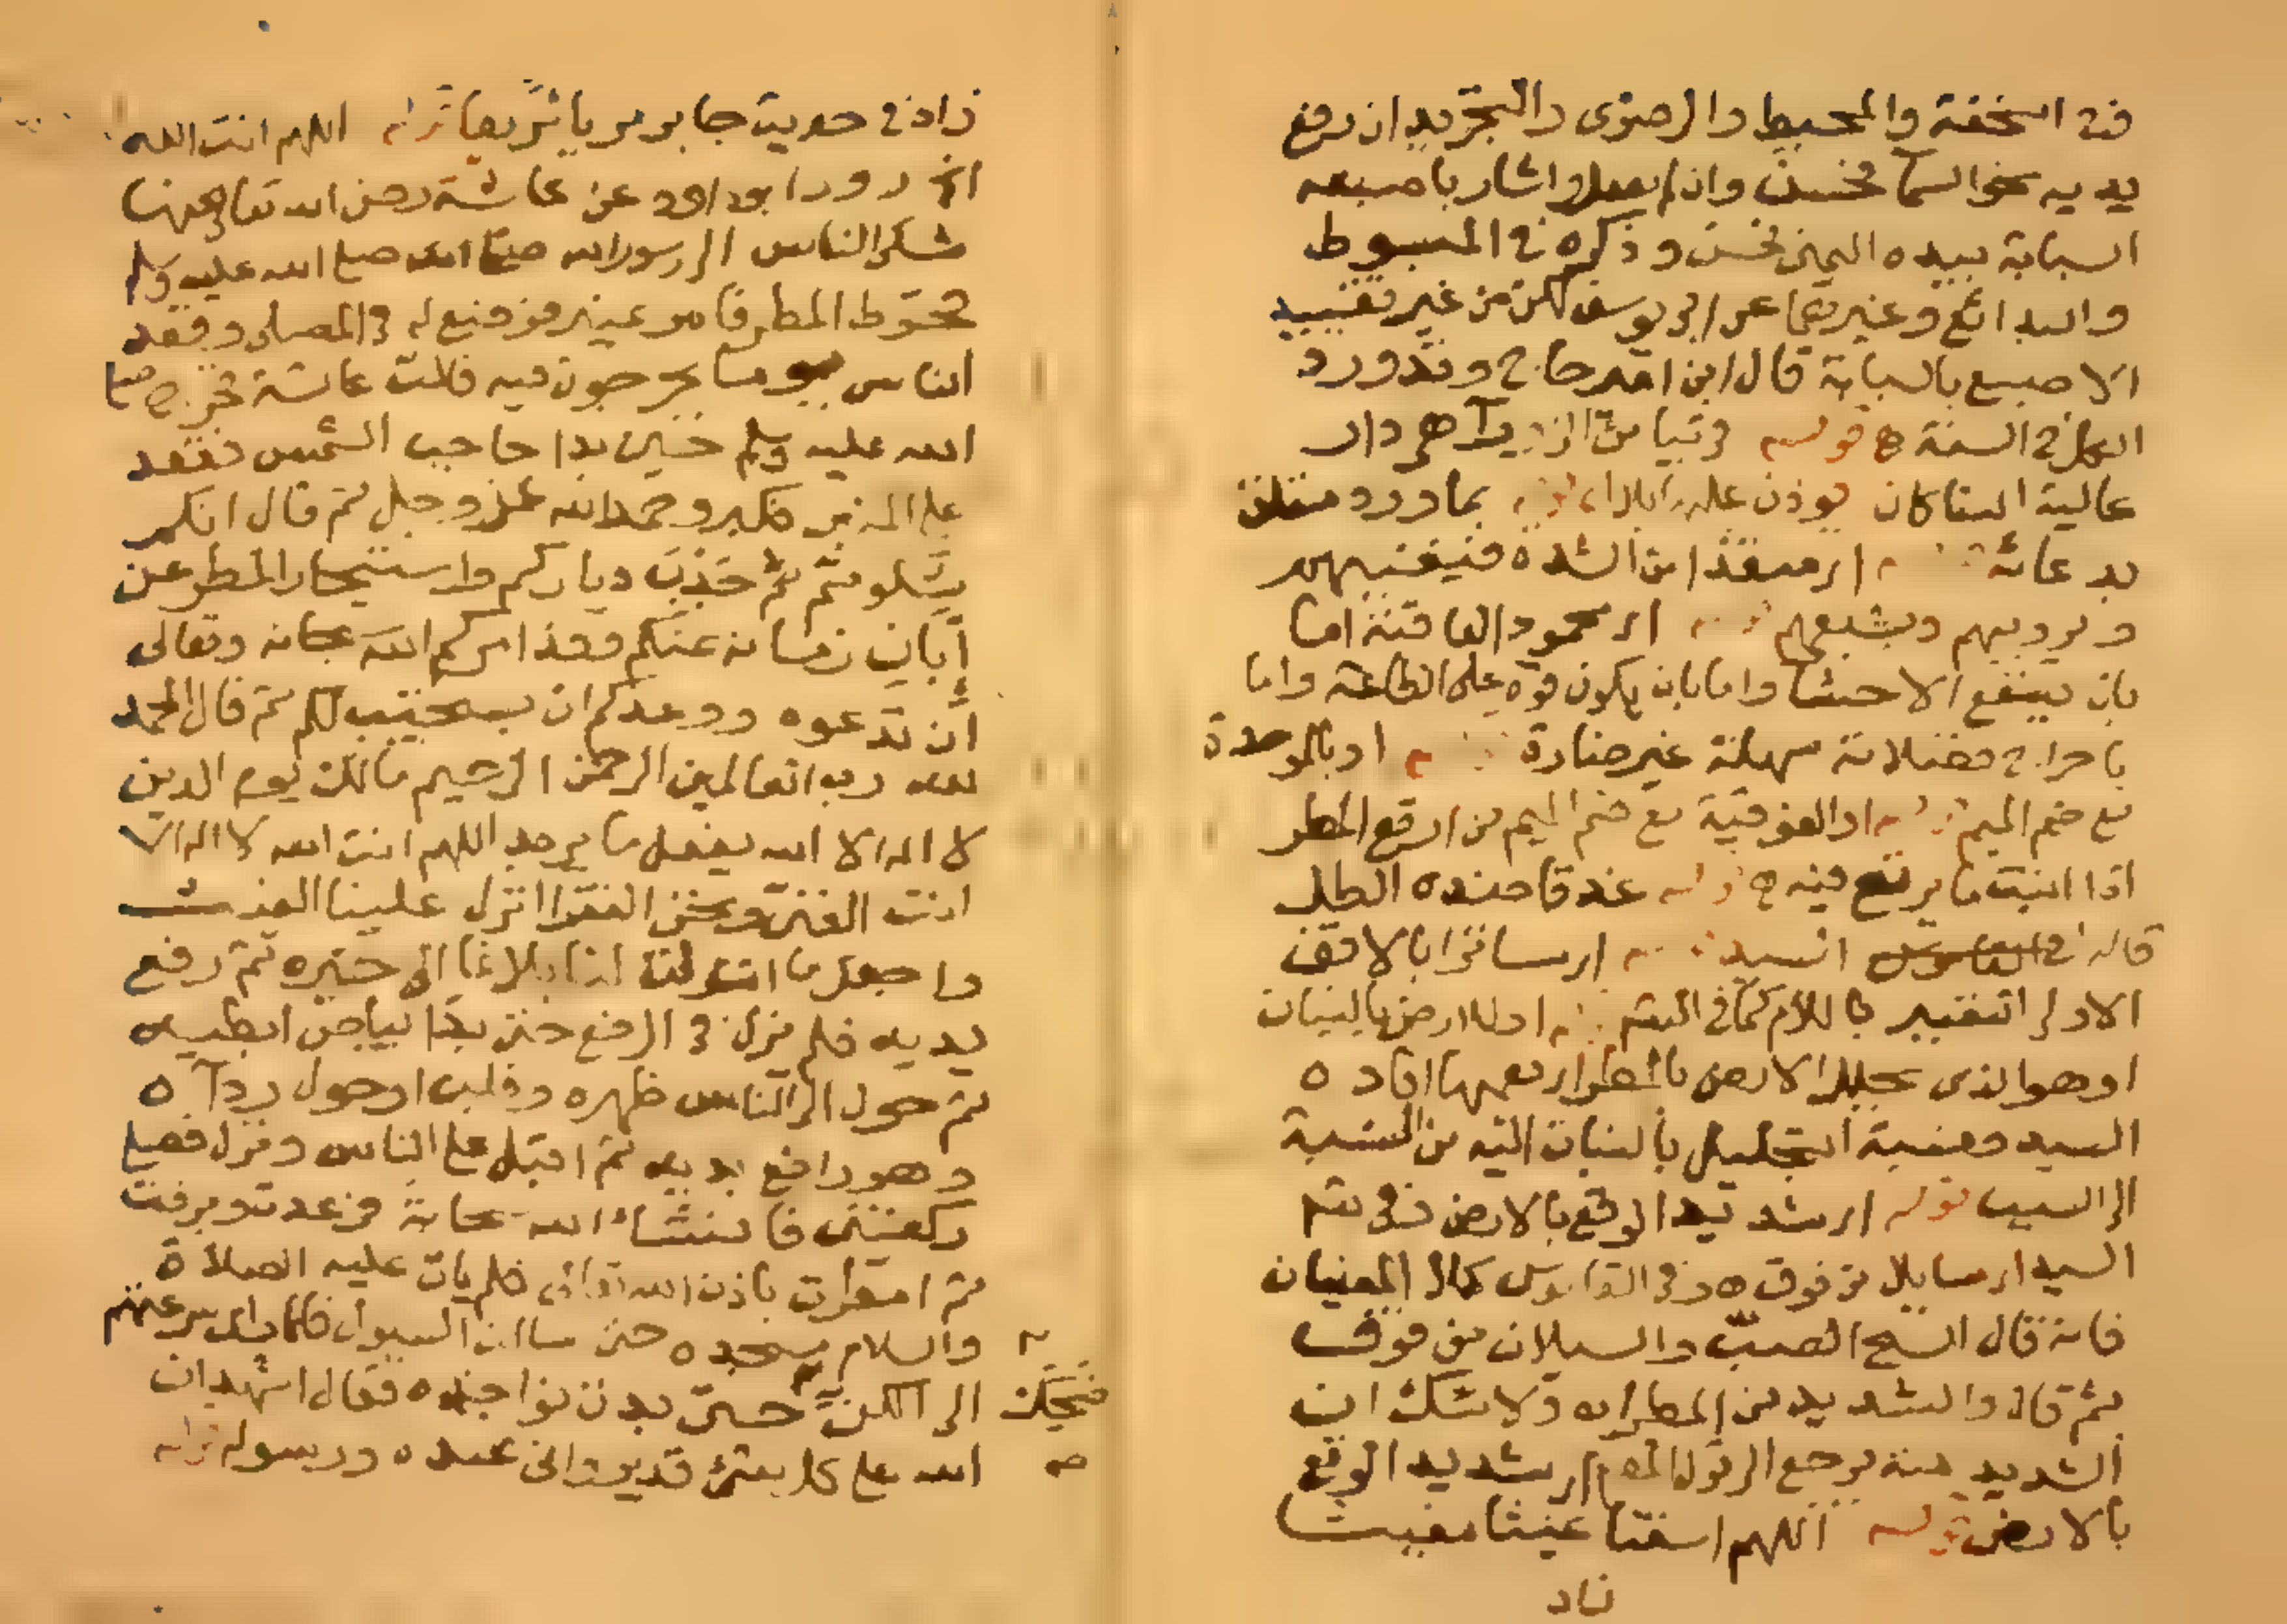 فى التحفة والمحيط والرضوى والتجريد ان رفع
يديه نحو السما فحسن وان لم يفعل واشار باصبعه
السبابة بيده اليمنى فحسن وذكره فى المبسوط
والبدائع وغيرهما عن ابى يوسف لكن من غير تقييد
الاصبع بالسبابة قال ابن امير حاج وقد ورد
الكل فى السنة ه قوله
عالية البنا كان يوذن عليها بلال قوله بما ورد
بدعائه قوله اى منقذا من الشدة فيغنيهم
ويرويهم ويشبعهم قوله اى محمود العاقبة اما
بان ينفع الاحشا واما بان يكون قوة على الطاعة واما
باخراج فضلاته سهلة غير ضارة قوله او بالموحدة
مع ضم الميم قوله او الفوقية مع ضم الميم من ارتع المطر
اذا انبت ما يرتع فيه ه قوله غدقا ضده الطل
قاله فى القاموس السيد قوله اى ساترا بالافق
الاول التعبير باللام كما فى
او هو الذى يجلل الارض بالمطر اى يعمها افاده
السيد ونسبة التجليل بالنبات اليه من النسبة
الى السبب قوله اى شديد الوقع بالارض
السيد اى سايلا من فوق ه وفى القاموس كلا المعنيان
فانه قال السح الصب والسيلان من فوق
ثم قال والشديد من المطر اه ولا شك ان
الشديد منه يرجع الى قول اى شديد الوقع
بالارض قوله اللهم اسقنا غيثا مغيثا
ناد
زاد فى حديث جابر مريا مريعا قوله اللهم انت الله
الخ روى ابو داود عن عائشة رضى الله تعالى عنها
شكى الناس الى رسول الله صلى الله عليه وسلم
قحوط المطر فامر بمنبر فوضع له فى المصلى ووعد
الناس يوما يخرجون فيه قالت عائشة فخرج صلى
الله عليه وسلم حين بدا حاجب الشمس فقعد
على المنبر فكبر وحمد الله عز وجل ثم قال انكم
شكوتم جدب دياركم واستيخار المطر عن
إبان زمانه عنكم وقد امركم الله سبحانه وتعالى
أن تدعوه ووعدكم ان يستجيب لكم ثم قال الحمد
لله رب العالمين الرحمن الرحيم مالك يوم الدين
لا اله الا الله يفعل ما يريد اللهم انت الله لا اله الا
انت الغنى ونحن الفقرا انزل علينا الغيث
واجعل ما انزلت لنا بلاغا الى حين ثم رفع
يديه فلم يزل فى الرفع حتى بدا بياض ابطيه
ثم حول الى الناس ظهره وقلب او حول ردآه
وهو رافع يديه ثم اقبل على الناس ونزل فصلى
ركعتين فانشا الله سحابة فرعدت وبرقت
ثم امطرت باذن الله تعالى فلم يات عليه الصلاة
والسلام مسجده حتى سالت السيول فلما راى سرعتهم
الى الكن حتى بدت نواجذه فقال اشهد ان
ضحك
صح
الله على كل شئ قدير وانى عبده ورسوله قوله